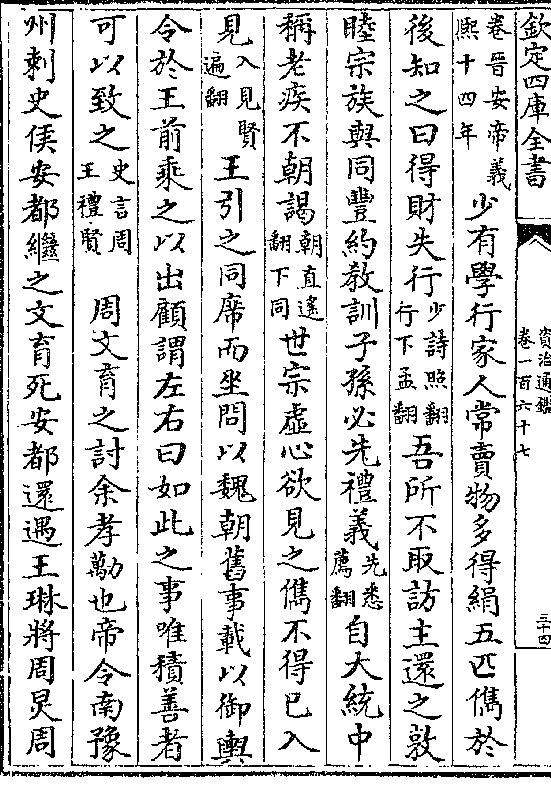 欽定四庫全書
資治通鑑
卷一百六十七
三十四
卷晉安帝義
熙十四年
少有學行家人常賣物多得絹五匹儁於
後知之曰得財失行
少詩照翻
行下孟翻
吾所不取訪主還之敦
睦宗族與同豐約教訓子孫必先禮義
先悉
薦翻
自大統中
稱老疾不朝謁
朝直遙
翻下同
世宗虛心欲見之儁不得已入
見
入見賢
遍翻
王引之同席而坐問以魏朝舊事載以御輿
令於王前乘之以出顧謂左右曰如此之事唯積善者
可以致之
史言周
王禮賢
周文育之討余孝勱也帝令南豫
州刺史侯安都繼之文育死安都還遇王琳將周炅周